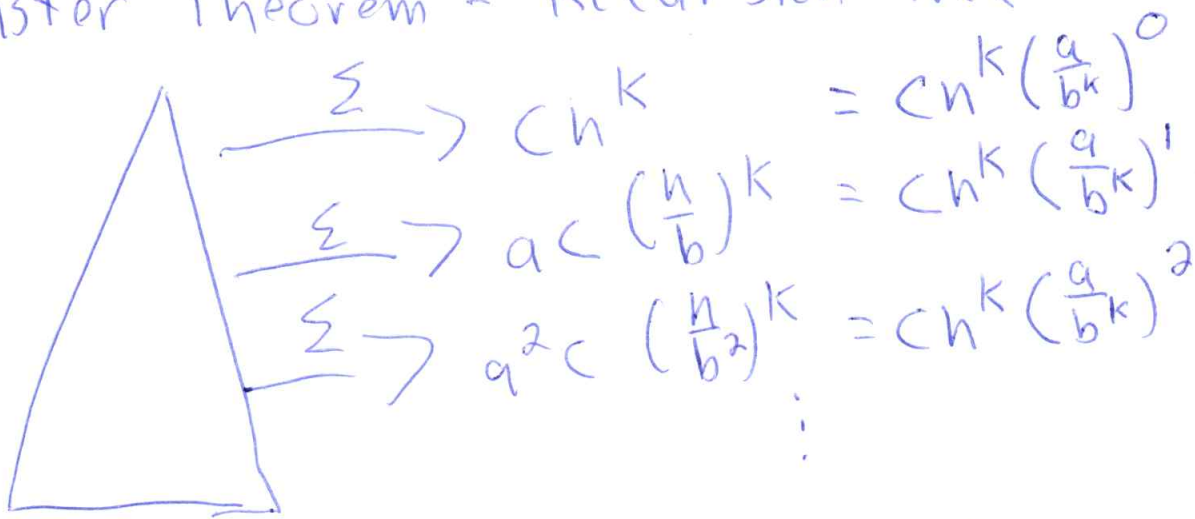 Theorem
Σ → cn^k = cn^k (a/b^k)^0
Σ → ac (n/b)^k = cn^k (a/b^k)^1
Σ → a^2 c (n/b^2)^k = cn^k (a/b^k)^2
⋮